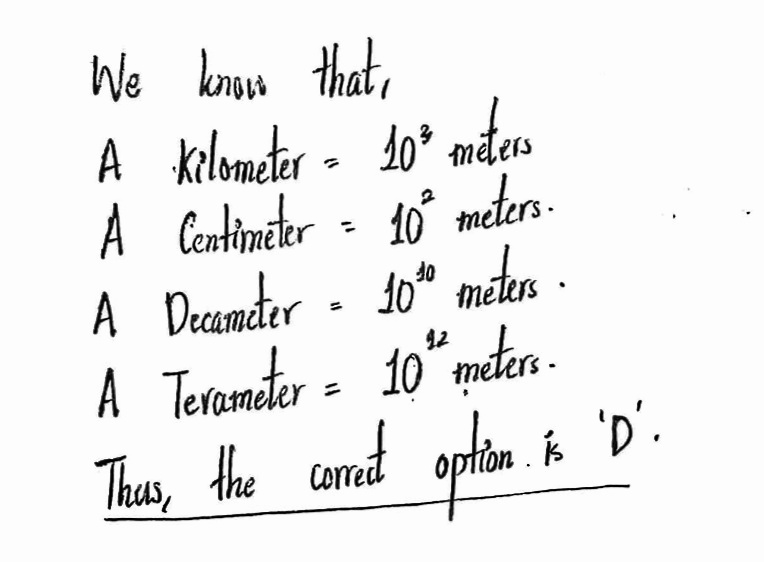 We know that,
A kilometer = 10³ meters
A Centimeter = 10² meters.
A Decameter = 10¹⁰ meters.
A Terameter = 10¹² meters.
Thus, the correct option is 'D'.